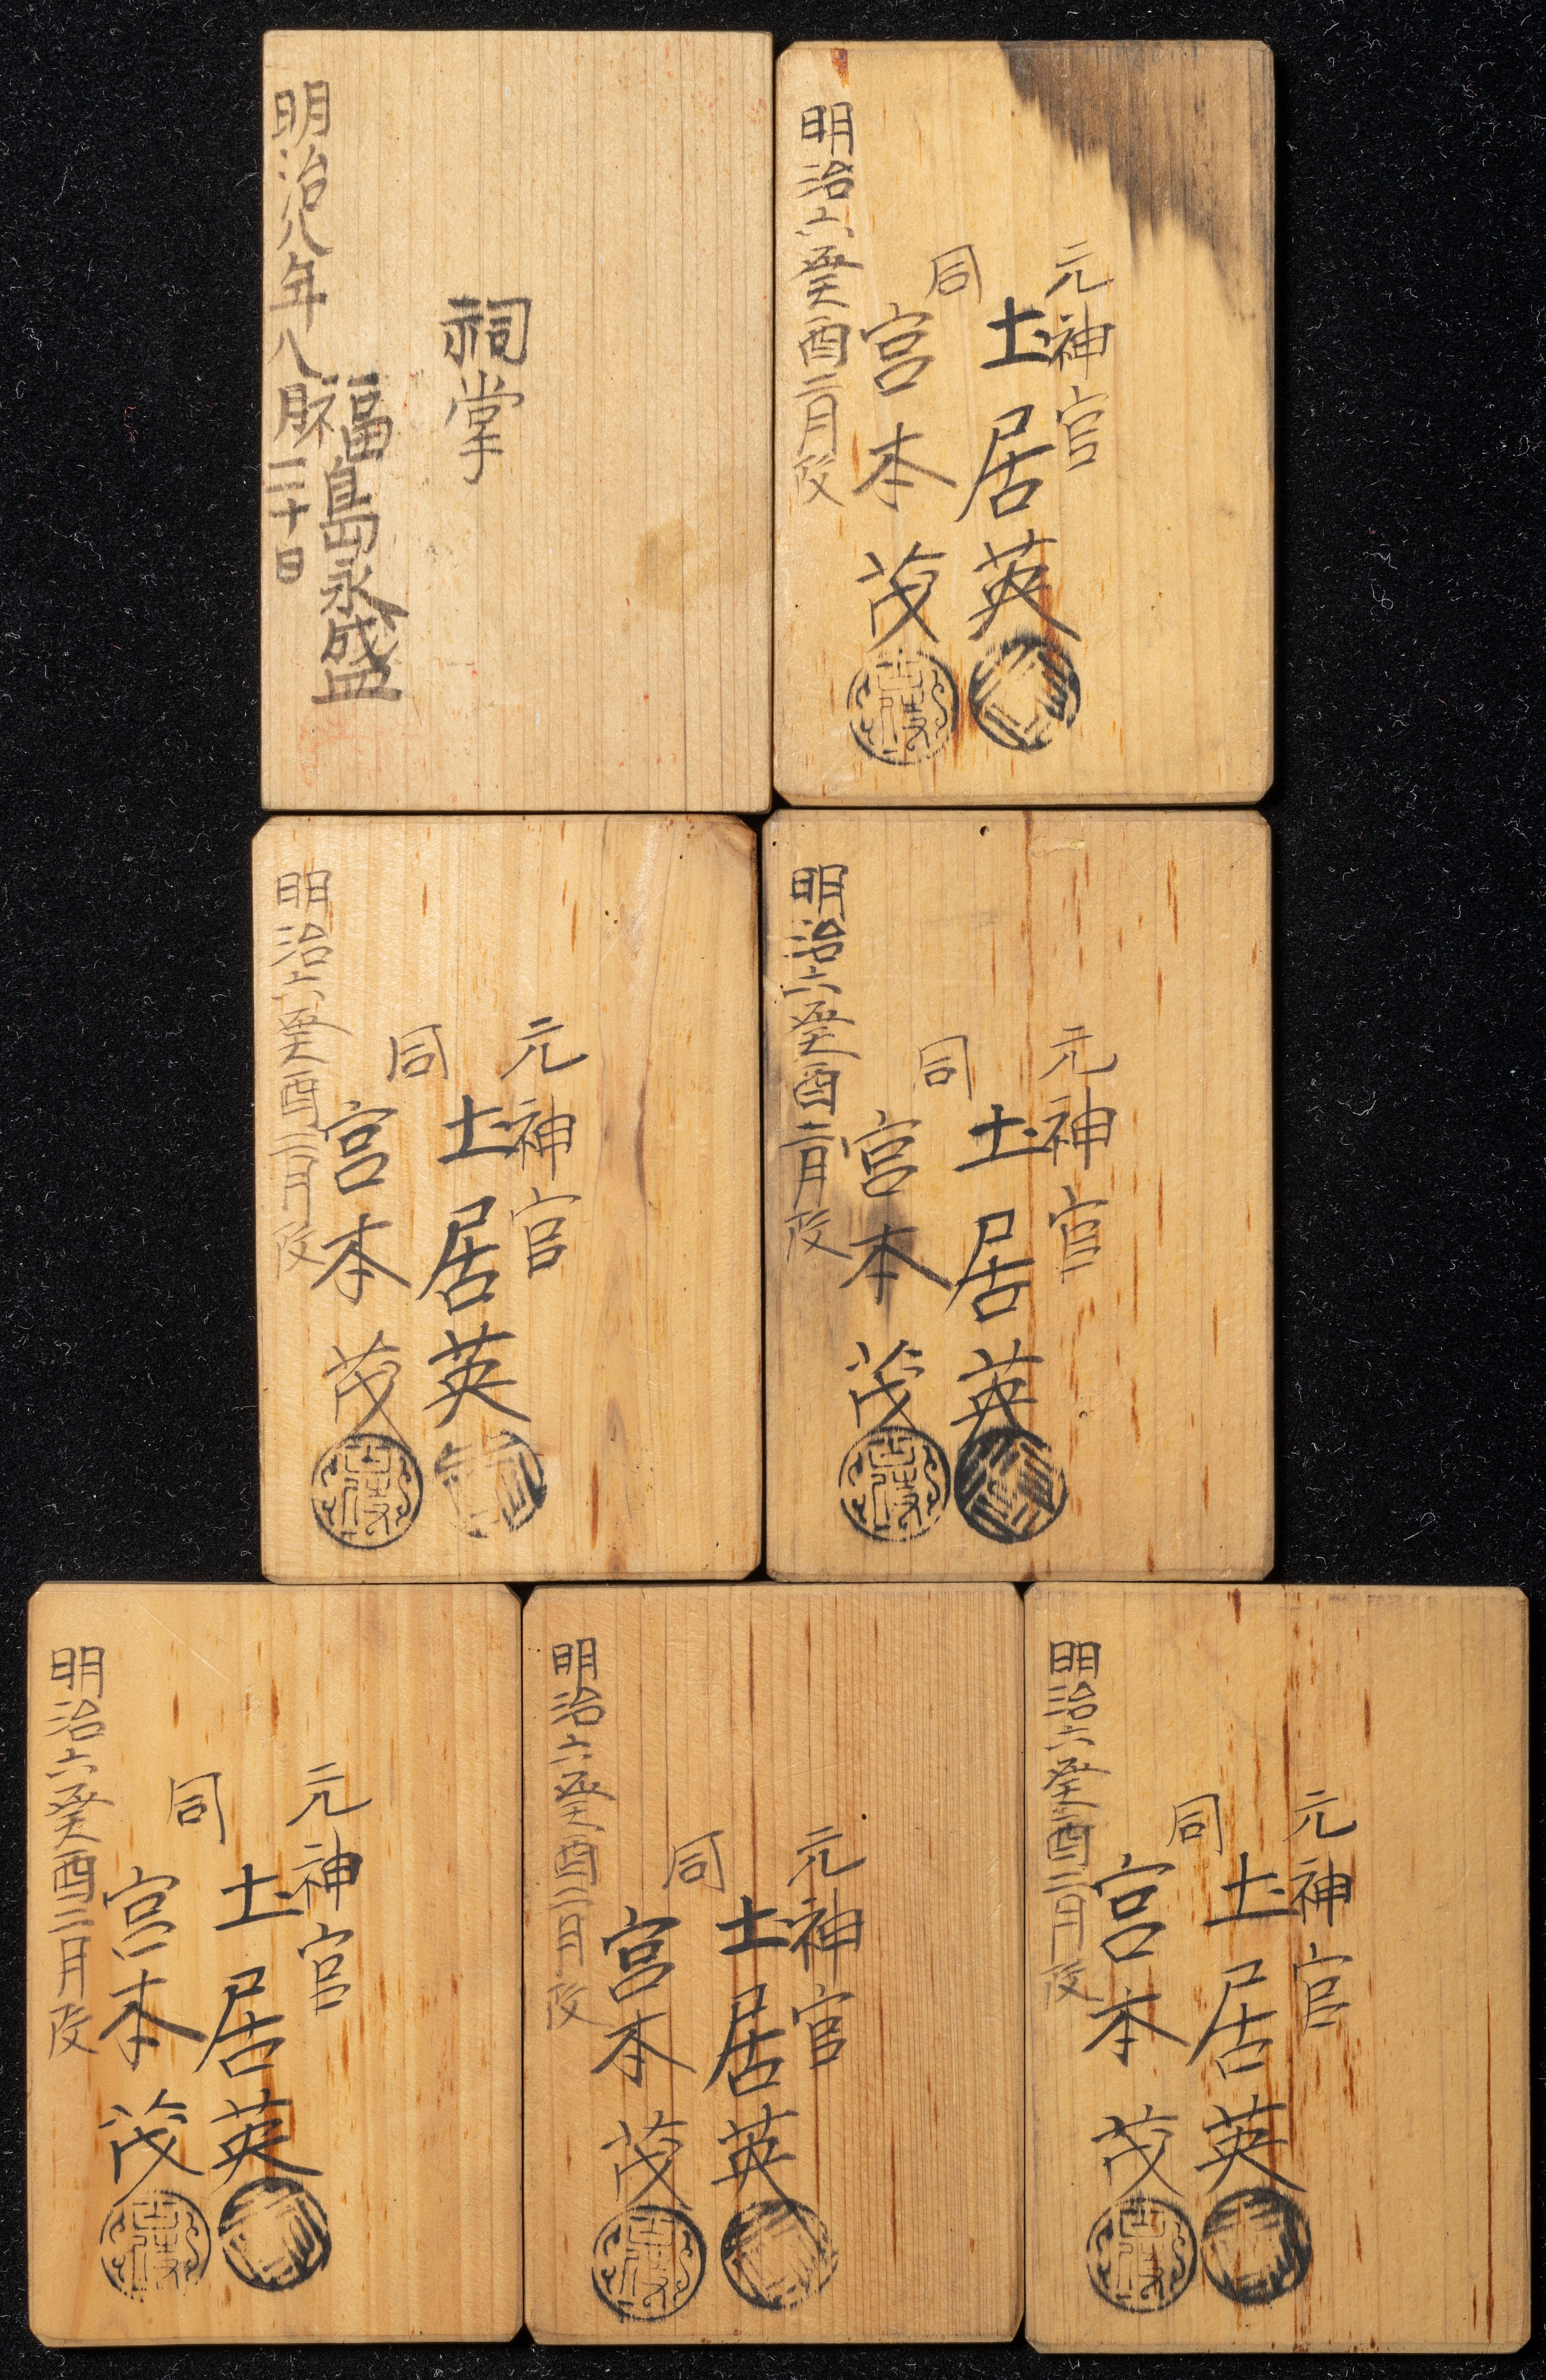 元神官
土居英
同
宮本茂
明治六癸酉二月改
祠掌
福島永盛
明治八年八月二十日
元神官
土居英
同
宮本茂
明治六癸酉二月改
元神官
土居英
同
宮本茂
明治六癸酉二月改
元神官
土居英
同
宮本茂
明治六癸酉二月改
元神官
土居英
同
宮本茂
明治六癸酉二月改
元神官
土居英
同
宮本茂
明治六癸酉二月改